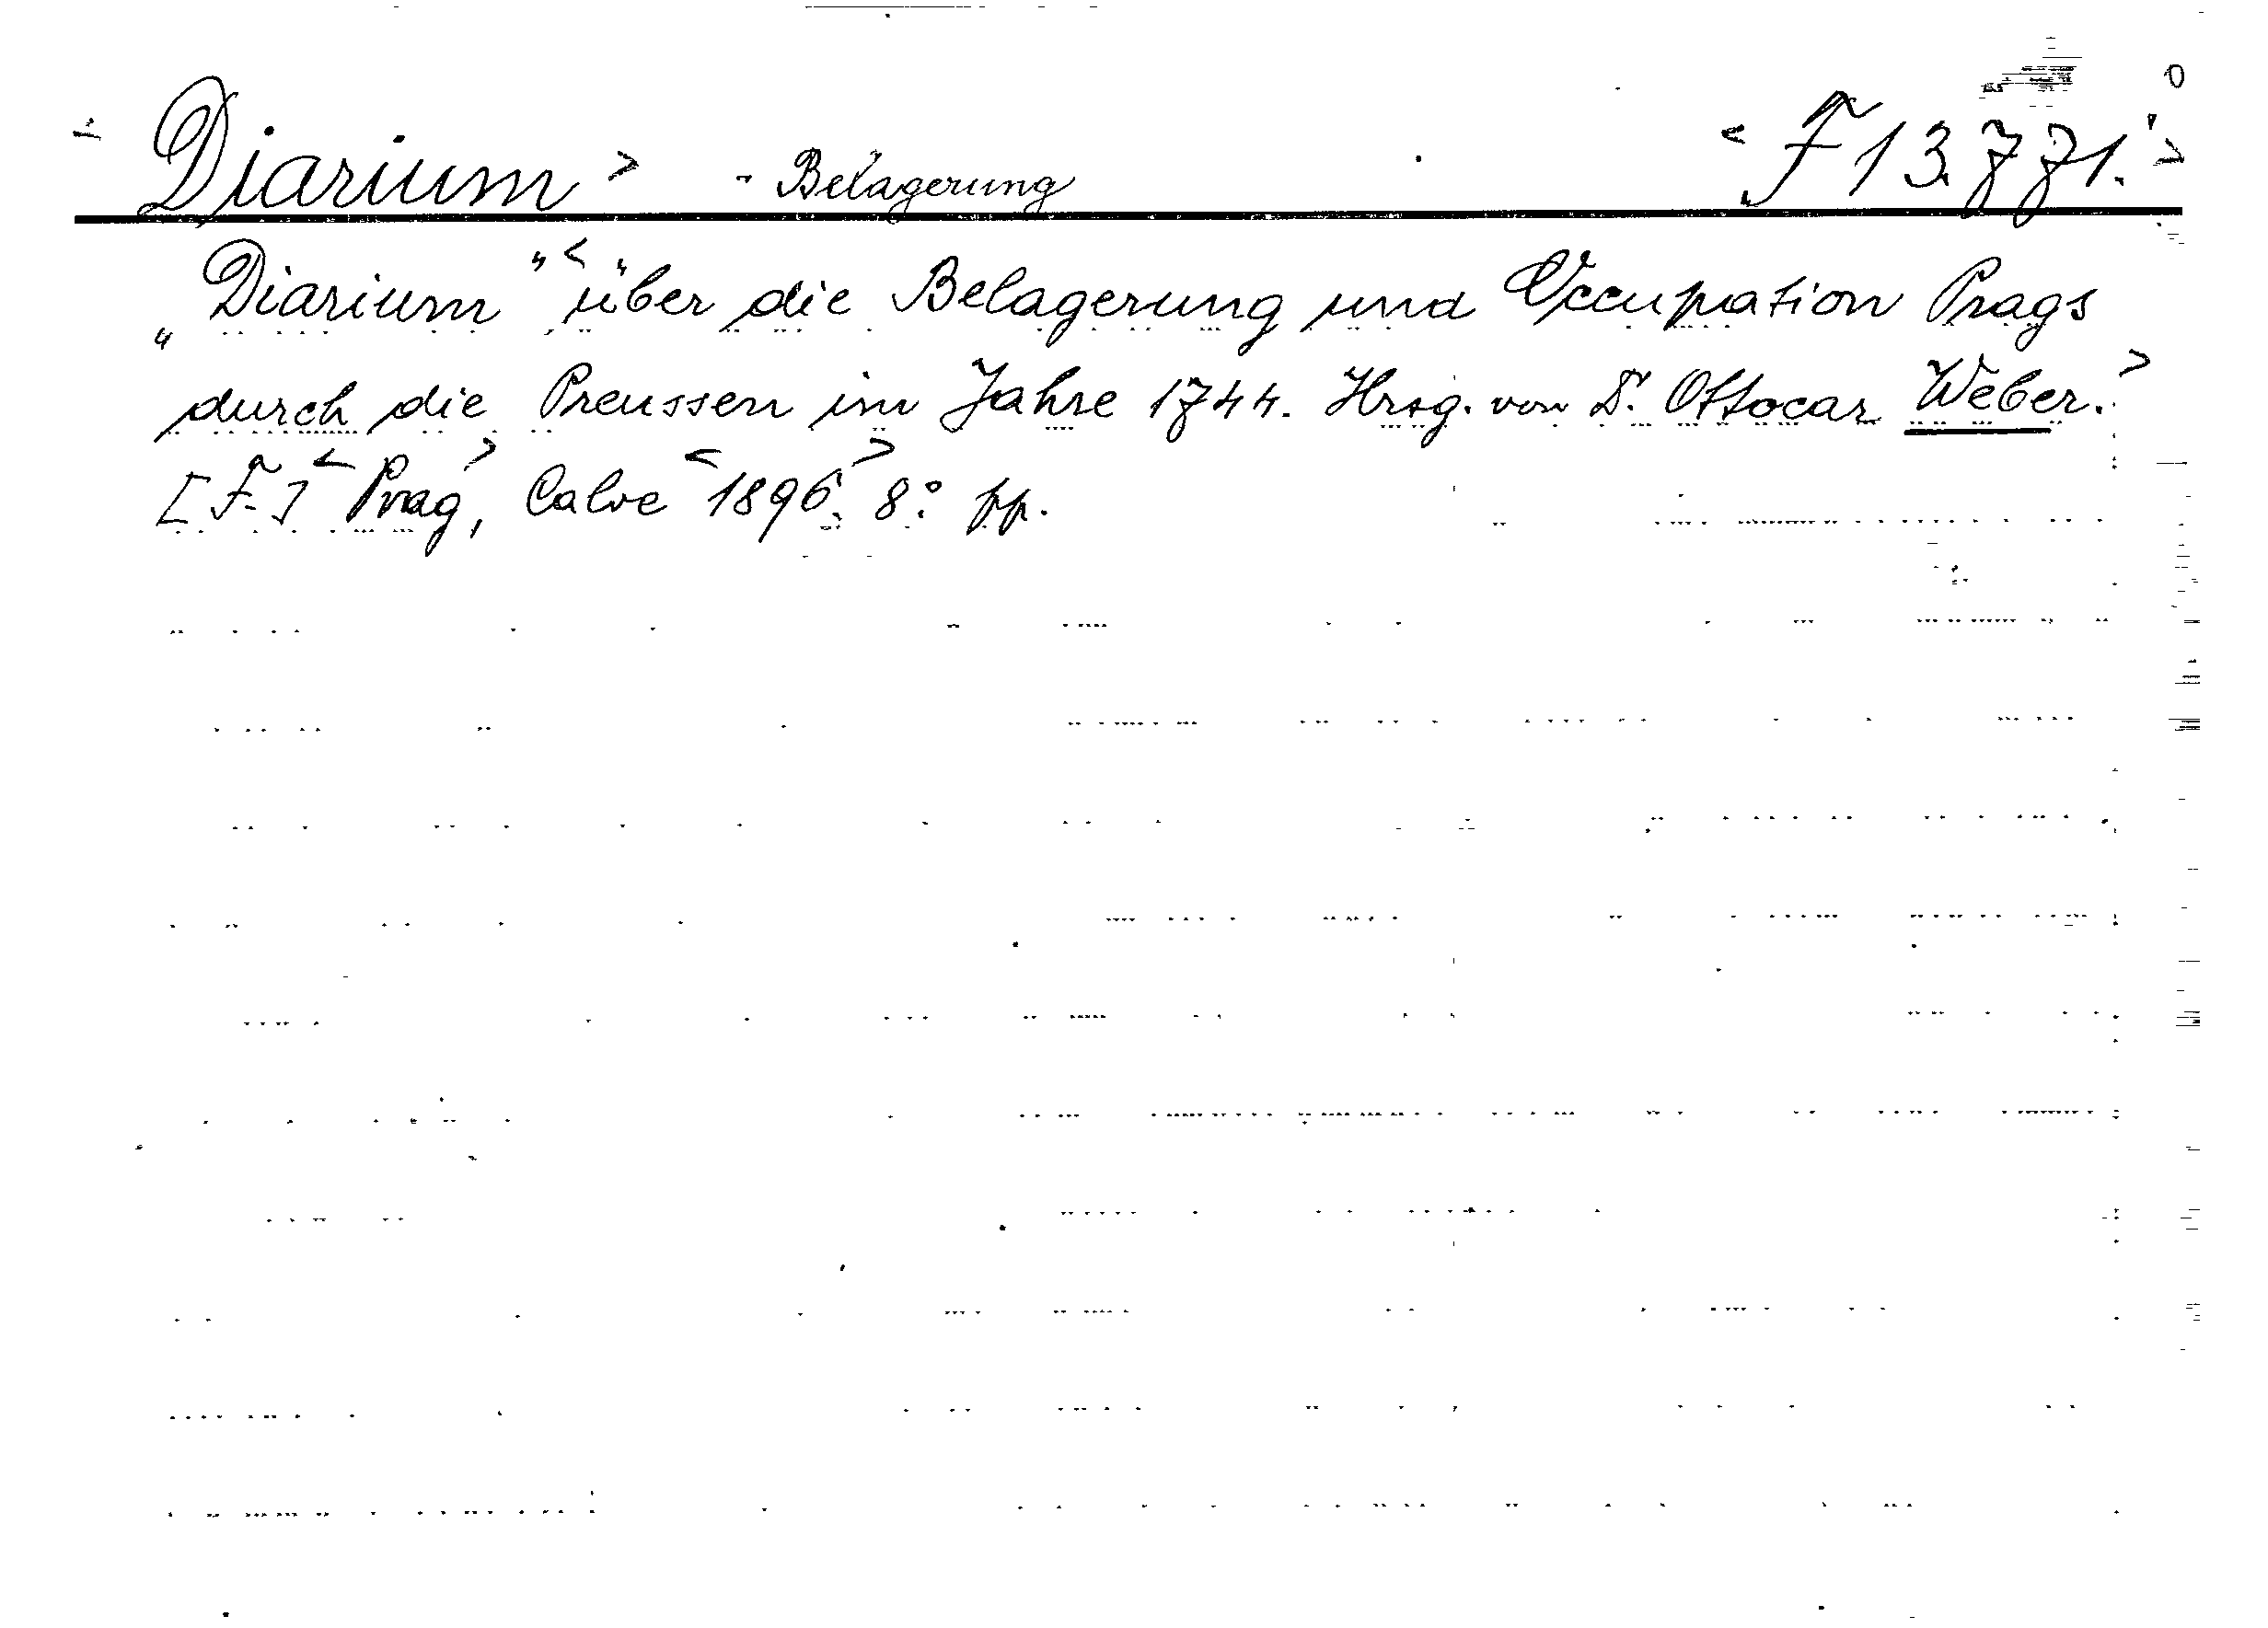 Diarium > - Belagerung < F 13.771. >
„Diarium" < über die Belagerung und Occupation Prags
durch die Preussen im Jahre 1744. Hrsg. von Dr. Ottocar Weber. >
[F.] < Prag >, Calve < 1896. > 8° pp.